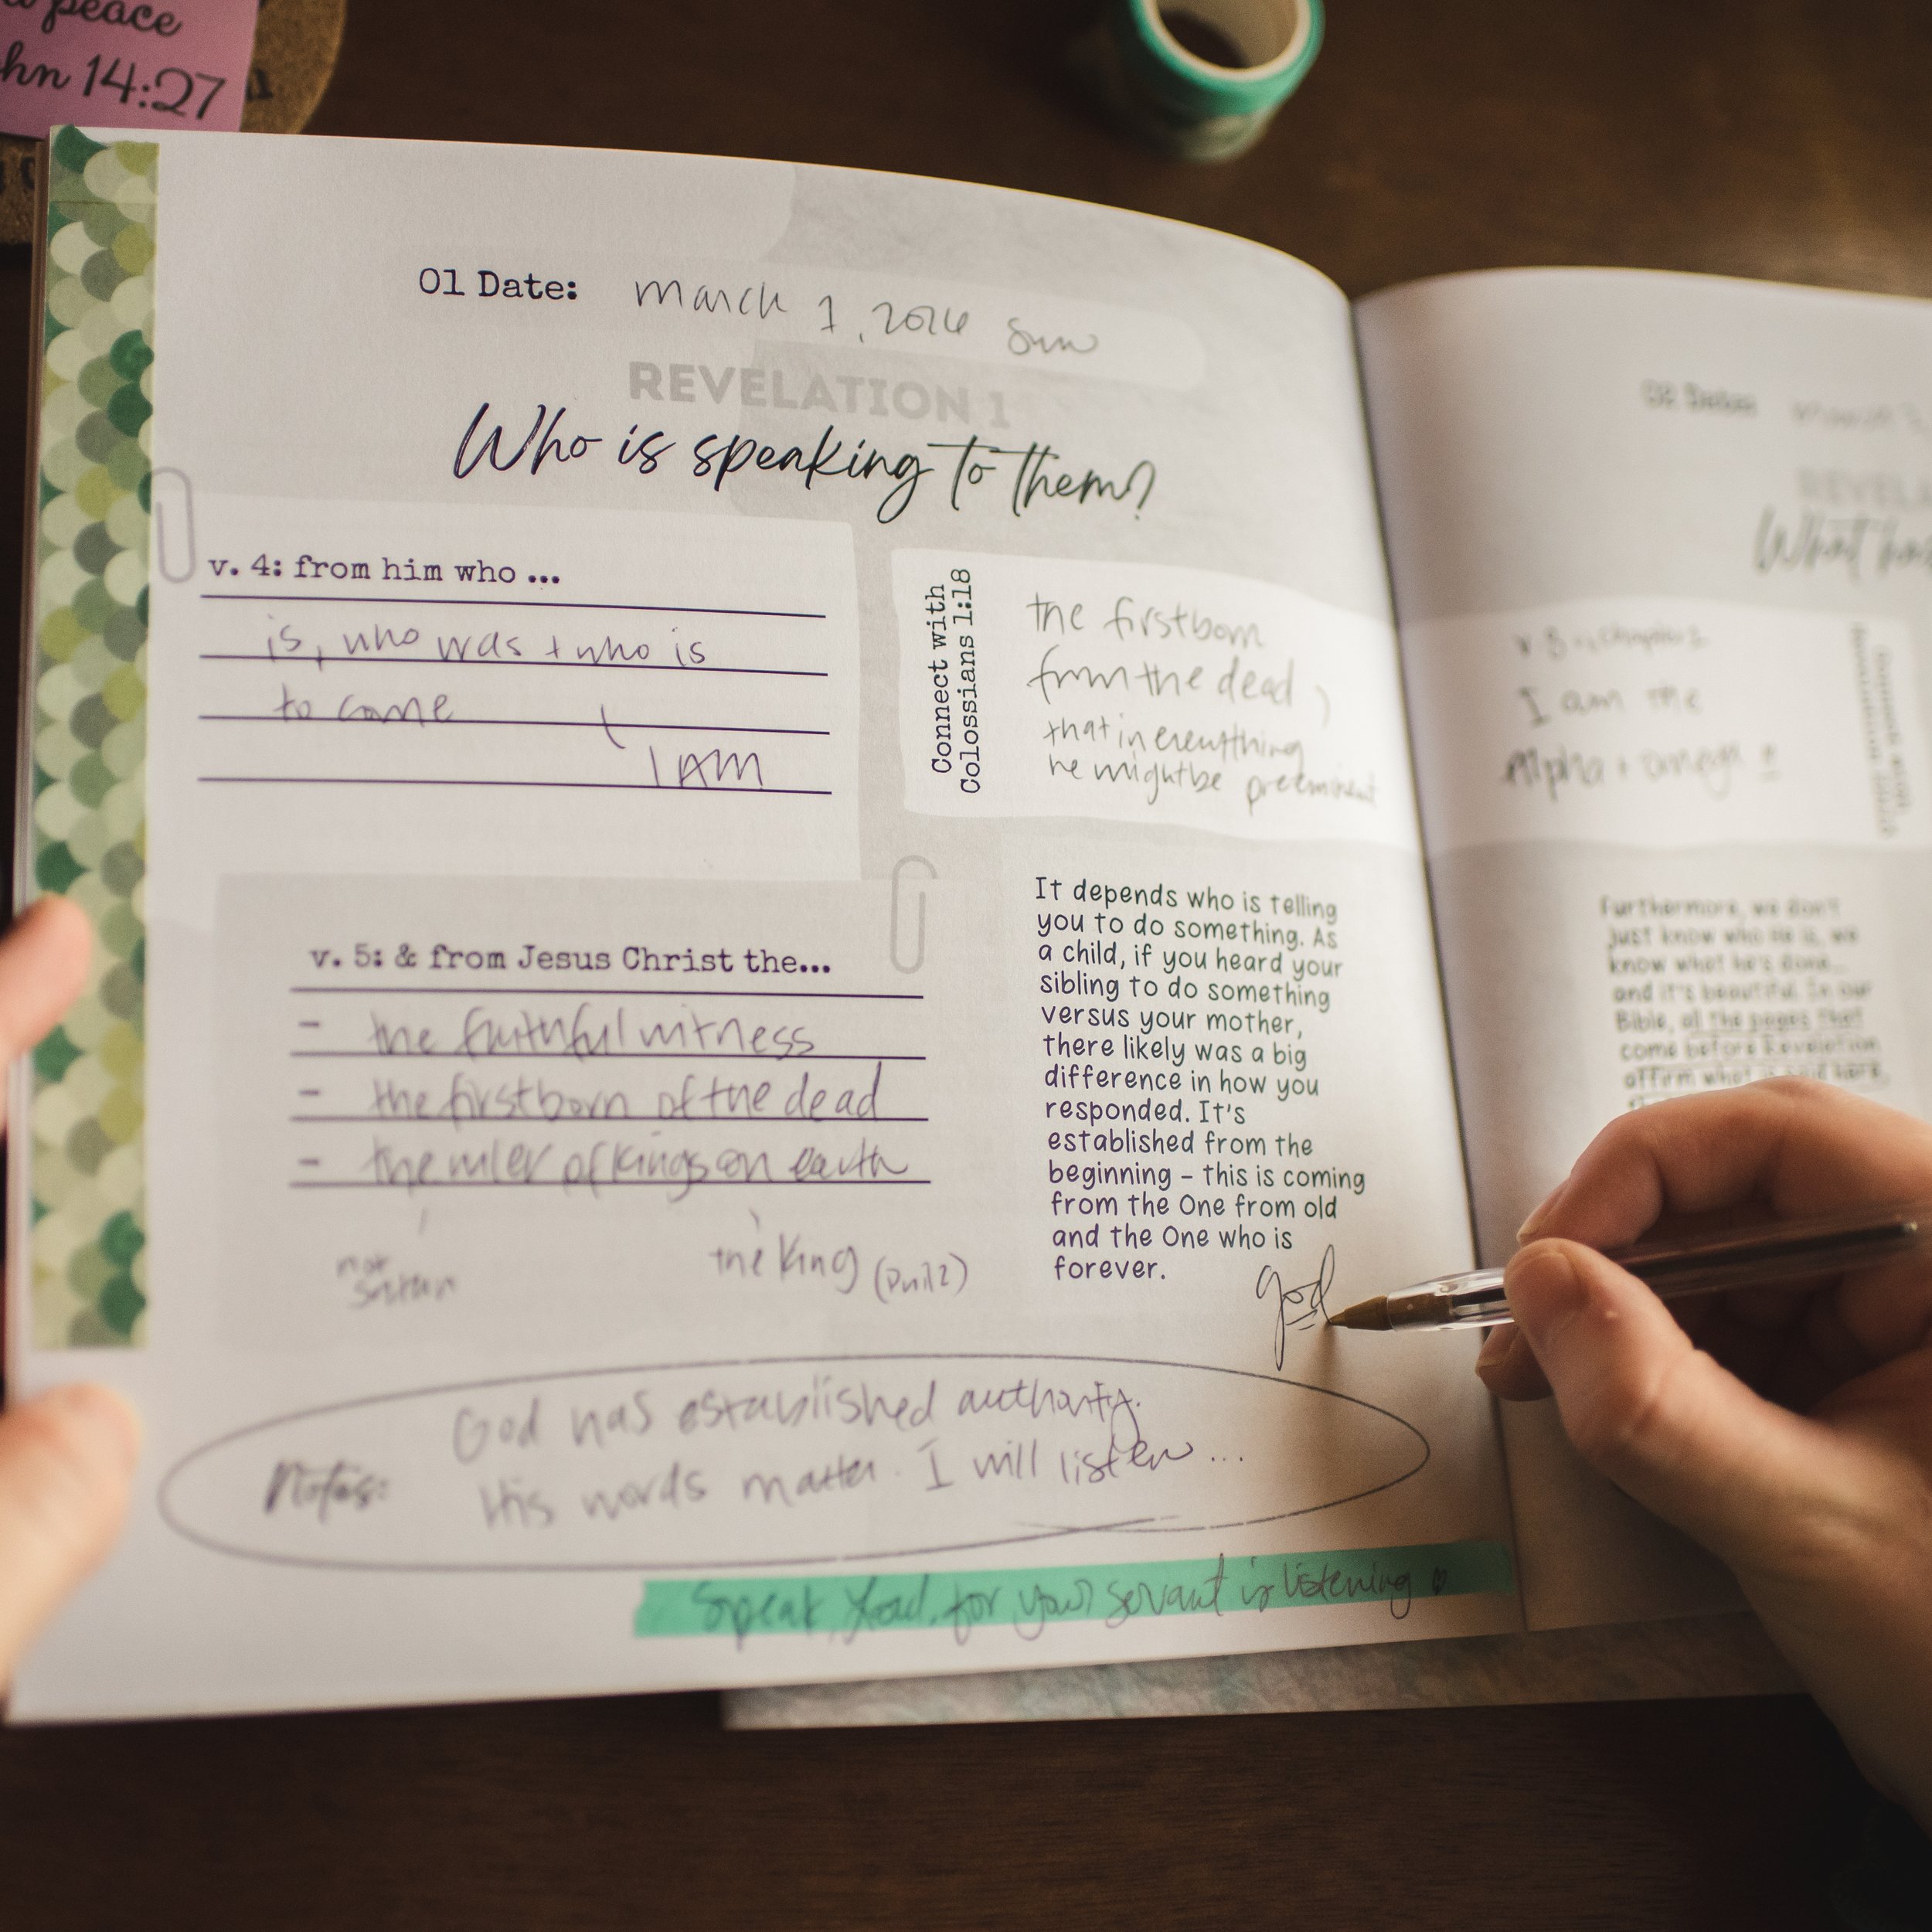 peace
hn 14:27
01 Date: march 1, 2026 Sun
REVELATION 1
Who is speaking to them?
v. 4: from him who ...
is, who was + who is
to come
I AM
Connect with
Colossians 1:18
the firstborn
from the dead,
that in everything
he might be preeminent
v. 5: & from Jesus Christ the...
- the faithful witness
- the firstborn of the dead
- the ruler of kings on earth
not
satan
the King (Phil 2)
It depends who is telling
you to do something. As
a child, if you heard your
sibling to do something
versus your mother,
there likely was a big
difference in how you
responded. It's
established from the
beginning – this is coming
from the One from old
and the One who is
forever.
God
Notes:
God has established authority.
His words matter. I will listen...
Speak, Lord, for your servant is listening
02 Date:
What
I am the
Alpha + Omega
Furthermore, we don't
just know who He is, we
know what he's done...
and it's beautiful. In our
Bible, all the pages that
come before Revelation
affirm what is said here,